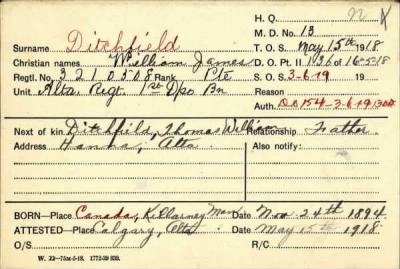 H. Q.
M. D. No. 13
Surname Ditchfield T. O. S. May 15th 1918
Christian names William James D. O. Pt. II 136 of 16-5-18
Regtl. No. 3210508 Rank Pte S. O. S. 3-6-19 19
Unit Alta. Regt. 1st Dpo Bn Reason
Auth. DO 154-3-6-19
Next of kin Ditchfield, Thomas William Relationship Father
Address Hanna, Alta Also notify:
BORN—Place Canada, Killarney Man Date Nov. 24th 1894
ATTESTED—Place Calgary, Alta Date May 15th 1918
O/S R/C
W. 22—75M-5-18. 1772-39 839.